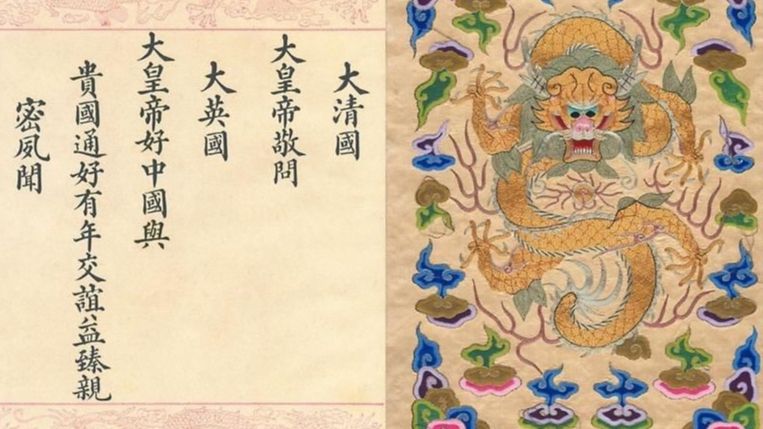 大清國
大皇帝敬問
大英國
大皇帝好中國與
貴國通好有年交誼益臻親
密夙聞